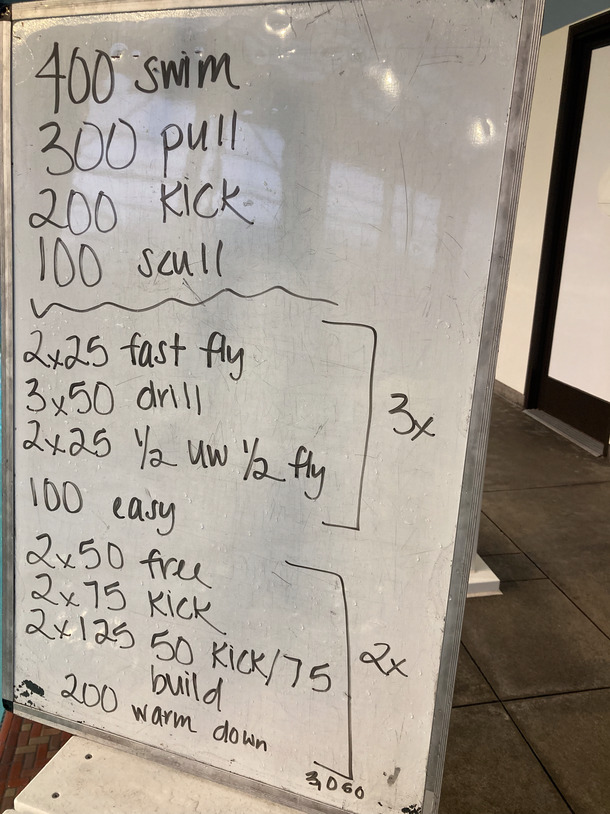 400 swim
300 pull
200 kick
100 scull
2x25 fast fly
3x50 drill
2x25 1/2 uw 1/2 fly
100 easy
3x
2x50 free
2x75 kick
2x125 50 kick/75
build
2x
200 warm down
3,060